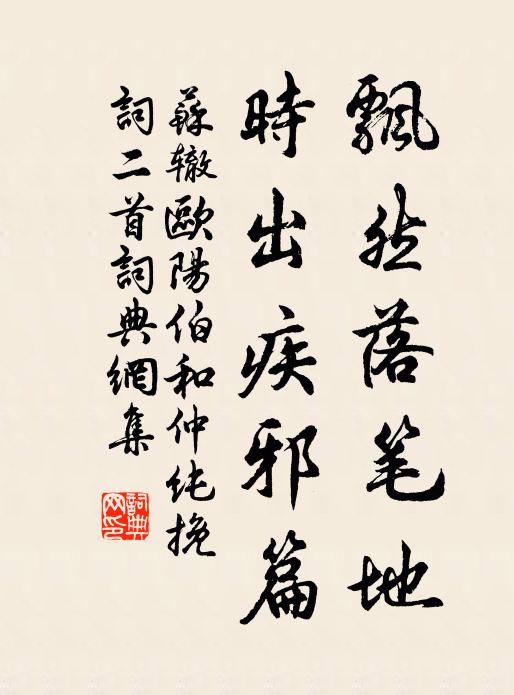 飄然落笔地
時出疾邪篇
蘇辙歐陽伯和仲纯挽
詞二首詞典網集
詞典
网印